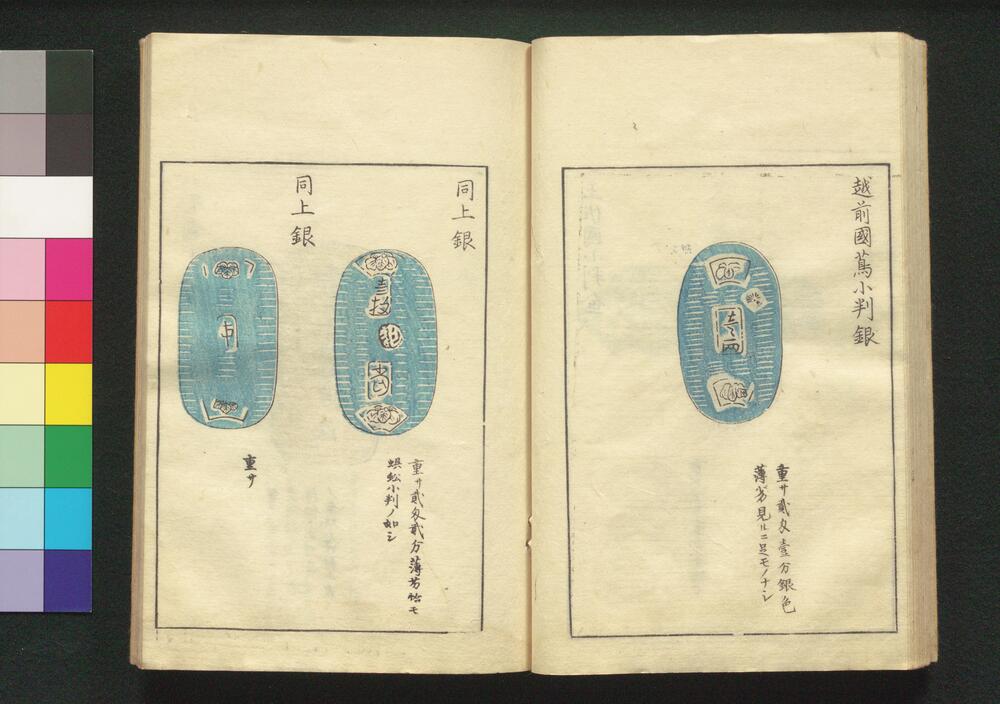 越前國蔦小判銀
壹両
重サ貳匁壹分銀色
薄劣見ルニ足モノナシ
同上銀
重サ貳匁貳分薄劣恰モ
蜈蚣小判ノ如シ
同上銀
重サ